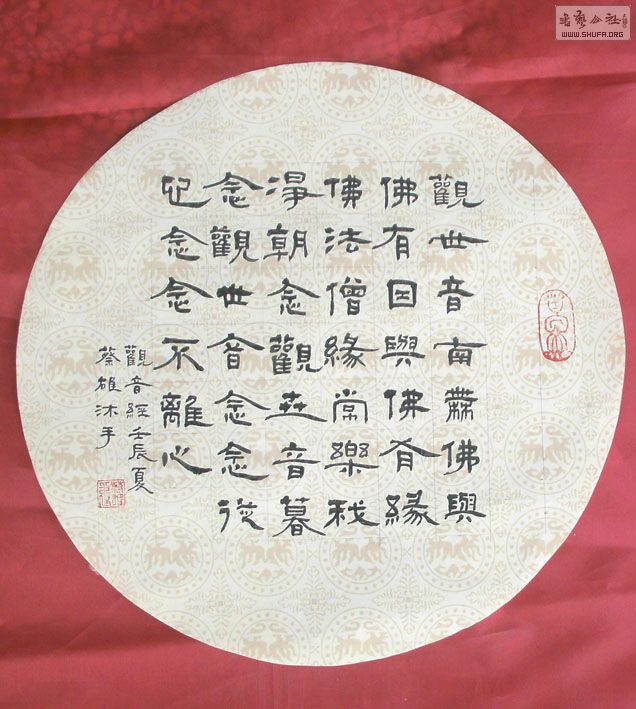 觀世音南無佛與
佛有因與佛有緣
佛法僧緣常樂我
淨朝念觀世音暮
念觀世音念念從
心念念不離心
觀音經壬辰夏
蔡雄沐手
書藝公社
WWW.SHUFA.ORG